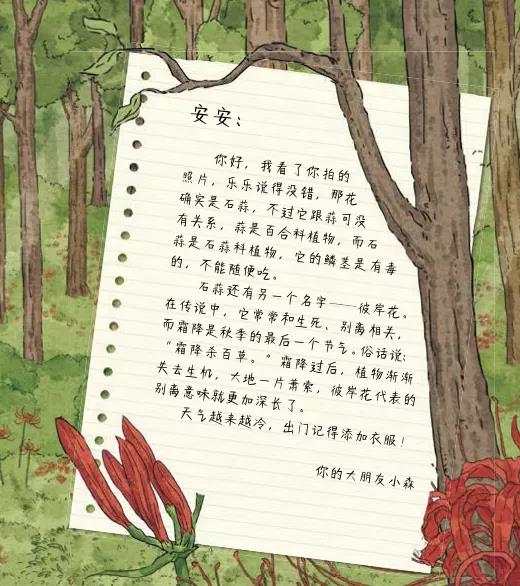 安安：
你好，我看了你拍的
照片，乐乐说得没错，那花
确实是石蒜，不过它跟蒜可没
有关系，蒜是百合科植物，而石
蒜是石蒜科植物，它的鳞茎是有毒
的，不能随便吃。
石蒜还有另一个名字——彼岸花。
在传说中，它常常和生死、别离相关，
而霜降是秋季的最后一个节气。俗话说：
“霜降杀百草。”霜降过后，植物渐渐
失去生机，大地一片萧索，彼岸花代表的
别离意味就更加深长了。
天气越来越冷，出门记得添加衣服！
你的大朋友小森